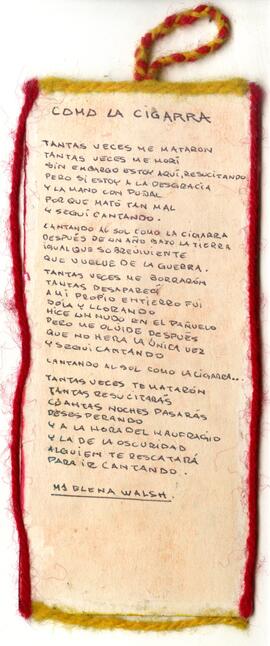 COMO LA CIGARRA
TANTAS VECES ME MATARON
TANTAS VECES ME MORÍ
SIN EMBARGO ESTOY AQUÍ, RESUCITANDO.
PERO SI ESTOY A LA DESGRACIA
Y LA MANO CON PUÑAL
POR QUE MATÓ TAN MAL
Y SEGUÍ CANTANDO.
CANTANDO AL SOL COMO LA CIGARRA
DESPUÉS DE UN AÑO BAJO LA TIERRA
IGUAL QUE SOBREVIVIENTE
QUE VUELVE DE LA GUERRA.
TANTAS VECES ME BORRARÓN
TANTAS DESAPARECÍ
A MI PROPIO ENTIERRO FUI
SOLA Y LLORANDO
HICE UN NUDO EN EL PAÑUELO
PERO ME OLVIDE DESPUÉS
QUE NO HERA LA ÚNICA VEZ
Y SEGUI CANTANDO
CANTANDO AL SOL COMO LA CIGARRA...
TANTAS VECES TE MATARÓN
TANTAS RESUCITARÁS
CUANTAS NOCHES PASARÁS
DESESPERANDO
Y A LA HORA DEL NAUFRAGIO
Y LA DE LA OSCURIDAD
ALGUIEN TE RESCATARÁ
PARA IR CANTANDO.
Mª ELENA WALSH.